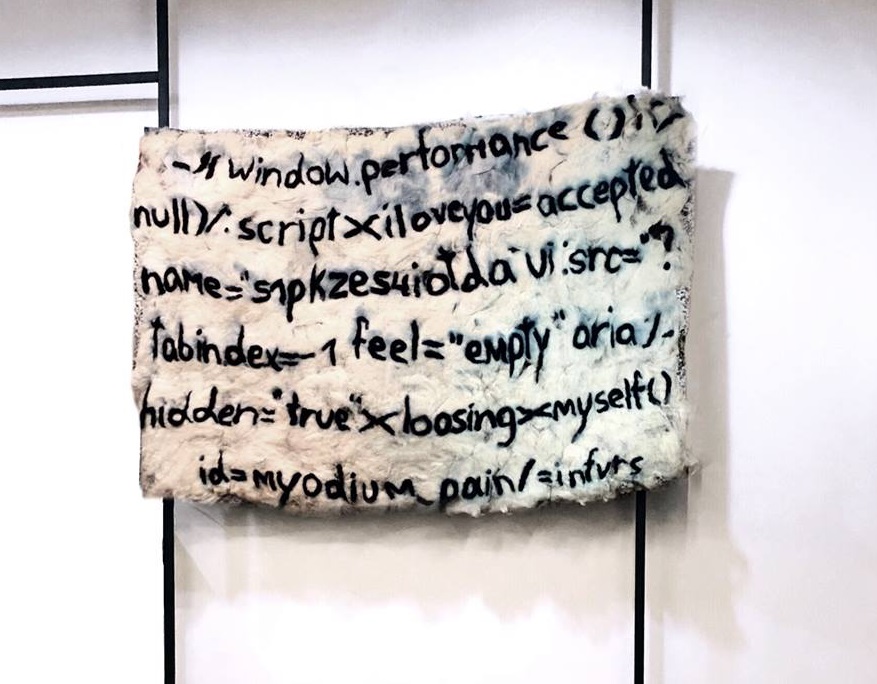 window.performance ();
null)/.script><iloveyou=accepted
name="s1pkzes4iotda vi.src="?
tabindex=-1 feel="empty" aria/-
hidden="true"><loosing><myself()
id=myodium_pain/=infvrs